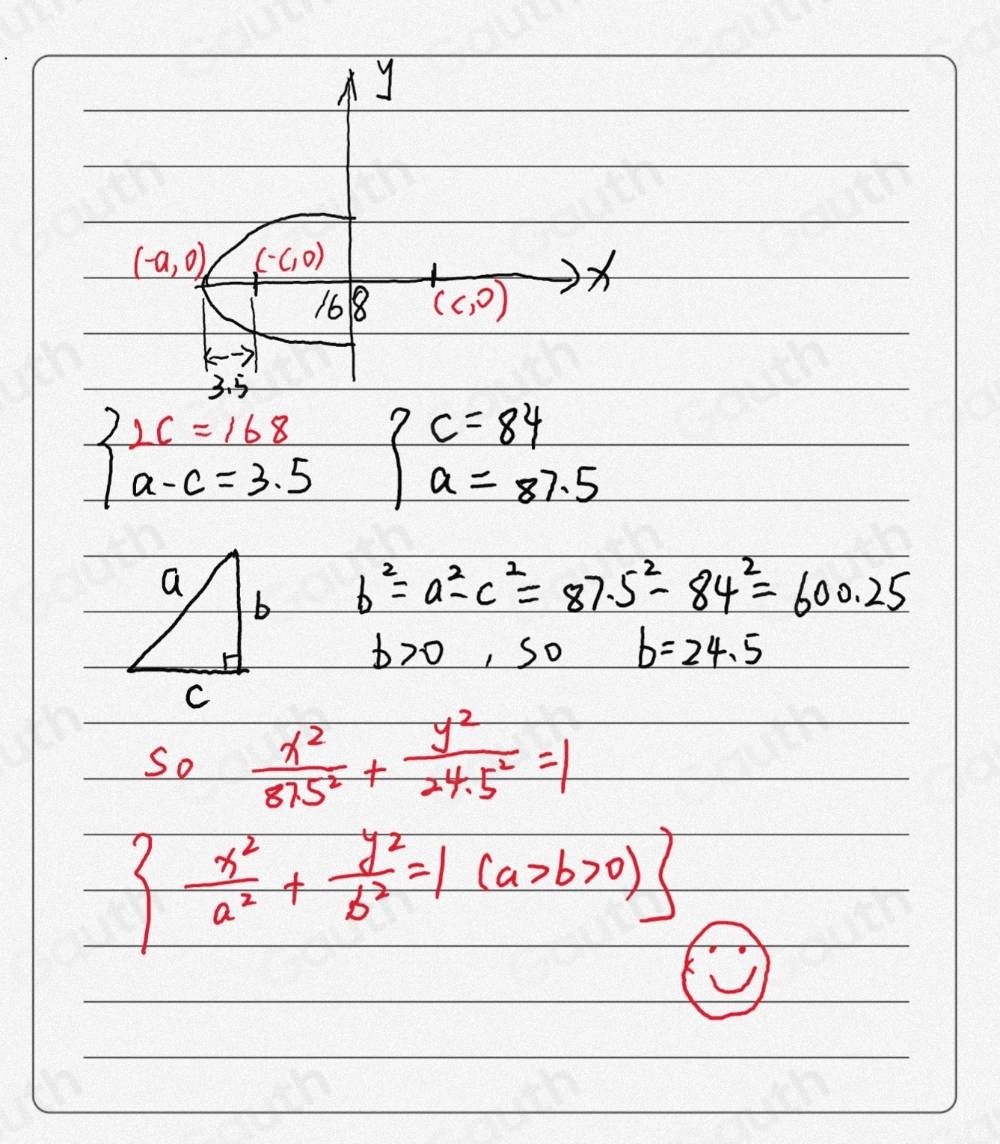 y
(-a,0) (-c,0)
x
168 (c,0)
3.5
{ 2c = 168 { c = 84
a - c = 3.5 a = 87.5
a b c
b² = a² - c² = 87.5² - 84² = 600.25
b>0 , so b = 24.5
so x²/87.5² + y²/24.5² = 1
{ x²/a² + y²/b² = 1 (a>b>0) }
Gauth